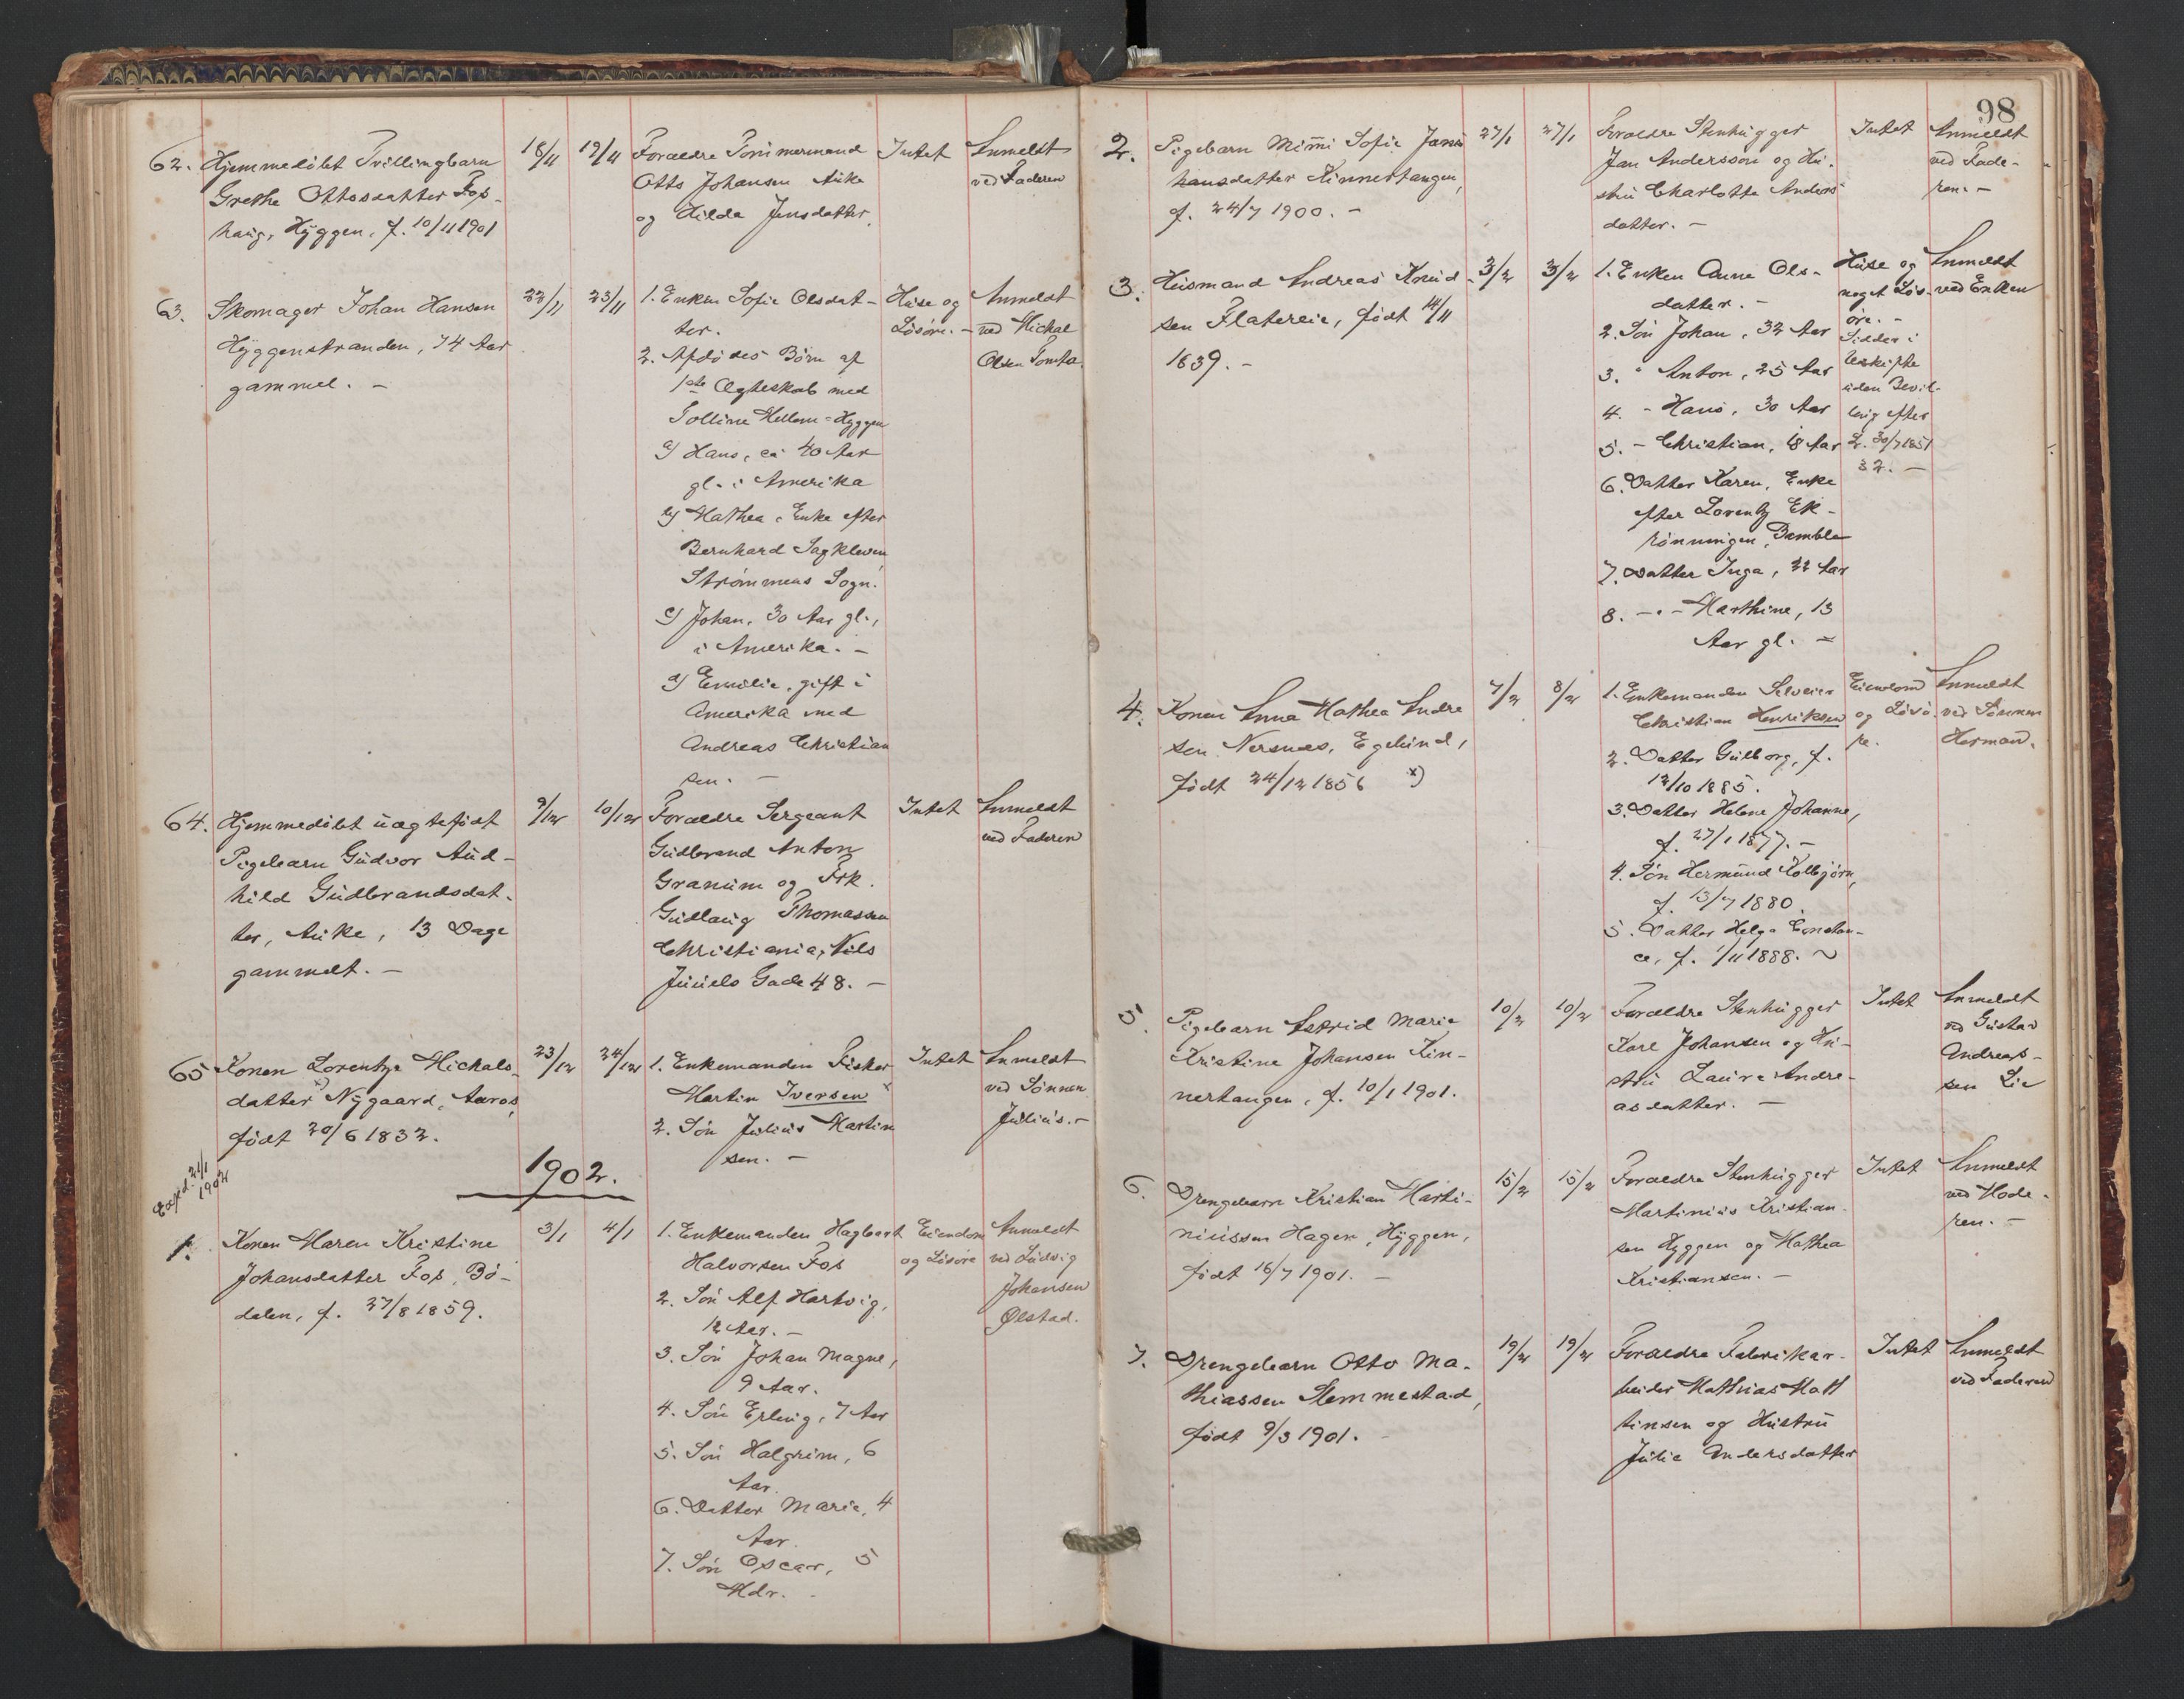 62. Hjemmedöbt Tvillingbarn
Grethe Ottosdatter Fos-
haug, Hyggen, f. 10/11 1901
18/11
19/11
Foraeldre Tömmermand
Otto Johansen Auke
og Hilda Jensdatter.
Intet
Anmeldt
ved Faderen
63. Skomager Johan Hansen
Hyggenstranden, 74 Aar
gammel. -
22/11
23/11
1. Enken Sofie Olsdat-
ter.
2. Afdödes Börn af
1ste Ægteskab med
Hyggen
a) Hans, ca 40 Aar
gl. i Amerika
b) Mathea, Enke efter
Bernhard Sagkleven
Strömmens Sogn.
c) Johan, 30 Aar gl.,
i Amerika. -
d) Emilie, gift i
Amerika med
Andreas Christian
sen. -
Huse og
Lösöre. -
Anmeldt
ved Mickal
Olsen Tomta.
64. Hjemmedöbt uægtefödt
Pigebarn Gudvor Aud-
hild Gudbrandsdat-
ter, Auke, 13 Dage
gammelt. -
9/12
10/12
Foraeldre Sergeant
Gudbrand Anton
Granum og Frk.
Gudlaug Thomassen
Christiania, Nils
Juuels Gade 48. -
Intet
Anmeldt
ved Faderen
65 Konen Lorentze Mickals-
datter Nygaard, Aaros,
födt 20/6 1832.
23/12
24/12
1. Enkemanden Fisker
Martin Iversen x
2. Sön Julius Martin
sen. -
Intet
Anmeldt
ved Sönnen
Julius. -
Exped. 21/1
1902
1902.
1. Konen Maren Kristine
Johansdatter Fos, Bö-
dalen, f. 27/8 1859.
3/1
4/1
1. Enkemanden Hagbart
Halvorsen Fos
2. Sön Alf Hartvig,
12 Aar. -
3. Sön Johan Magne,
9 Aar.
4. Sön Erling, 7 Aar
5. Sön Halgrim, 6
Aar.
6. Datter Marie, 4
Aar.
7. Sön Oscar, 5
Mdr.
Eiendom
og Lösöre
Anmeldt
ved Ludvig
Johansen
Ølstad.
98
2. Pigebarn Mimi Sofie Jans
datter Kinnertangen,
f. 24/7 1900. -
27/1
27/1
Foraeldre Stenhugger
Jan Andersson og Hu-
stru Charlotte Anders
datter. -
Intet
Anmeldt
ved Fade-
ren. -
3. Husmand Andreas Knud-
sen Flatereie, födt 14/11
1839. -
3/2
3/2
1. Enken Anne Ols-
datter. -
2. Sön Johan, 32 Aar
3. " Anton, 25 Aar
4. - Hans, 30 Aar
5. - Christian, 18 Aar
6. Datter Karen, Enke
efter Lorentz Ek-
rönningen, Bamble
7. Datter Inga, 22 Aar
8. -"- Marthine, 13
Aar gl. -
Huse og
noget Lös-
öre. -
Sidder i
Uskifte
uden Bevil-
ling efter
L. 30/7 1851
32. -
Anmeldt
ved Enken
4. Konen Anna Mathea Andre
sen Nersnæs, Egelund,
födt 24/12 1856 x)
7/2
8/2
1. Enkemanden Selveier
Christian Henriksen
2. Datter Gulborg, f.
12/10 1885.
3. Datter Helene Johanne,
f. 27/1 1877. -
4. Sön Hermund Kolbjörn,
f. 13/7 1880.
5. Datter Helga Constan-
ce, f. 1/11 1888. ~
Eiendom
og Lösö-
re.
Anmeldt
ved Sönnen
Hermund.
5. Pigebarn Astrid Marie
Kristine Johansen Kin-
nertangen, f. 10/1 1901.
10/2
10/2
Foraeldre Stenhugger
Karl Johansen og Hu-
stru Laura Andre-
asdatter. -
Intet
Anmeldt
ved Gustav
Andreas-
sen Lie
6. Drengebarn Kristian Marti-
niussen Hagen, Hyggen,
födt 16/7 1901. -
15/2
15/2
Foraeldre Stenhugger
Martinius Kristian-
sen Hyggen og Mathea
Kristiansen. -
Intet
Anmeldt
ved Mode-
ren. -
7. Drengebarn Otto Ma-
thiassen Slemmestad,
födt 9/3 1901.
19/2
19/2
Foraeldre Fabrikar-
beider Mathias Matt
tinsen og Hustru
Julie Andersdatter
Intet
Anmeldt
ved Faderen